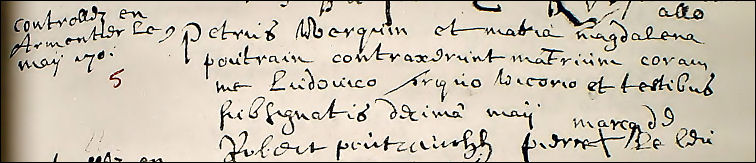 allo
controllé en
Armentier Le 9
maÿ 170.
5
Petrus Werquin et maria magdalena
poutrain contraxerunt matrium coram
me Ludovico vicorio et testibus
subsignatis decimâ maÿ
marcq dd
Robert poutrain pierre Le
en